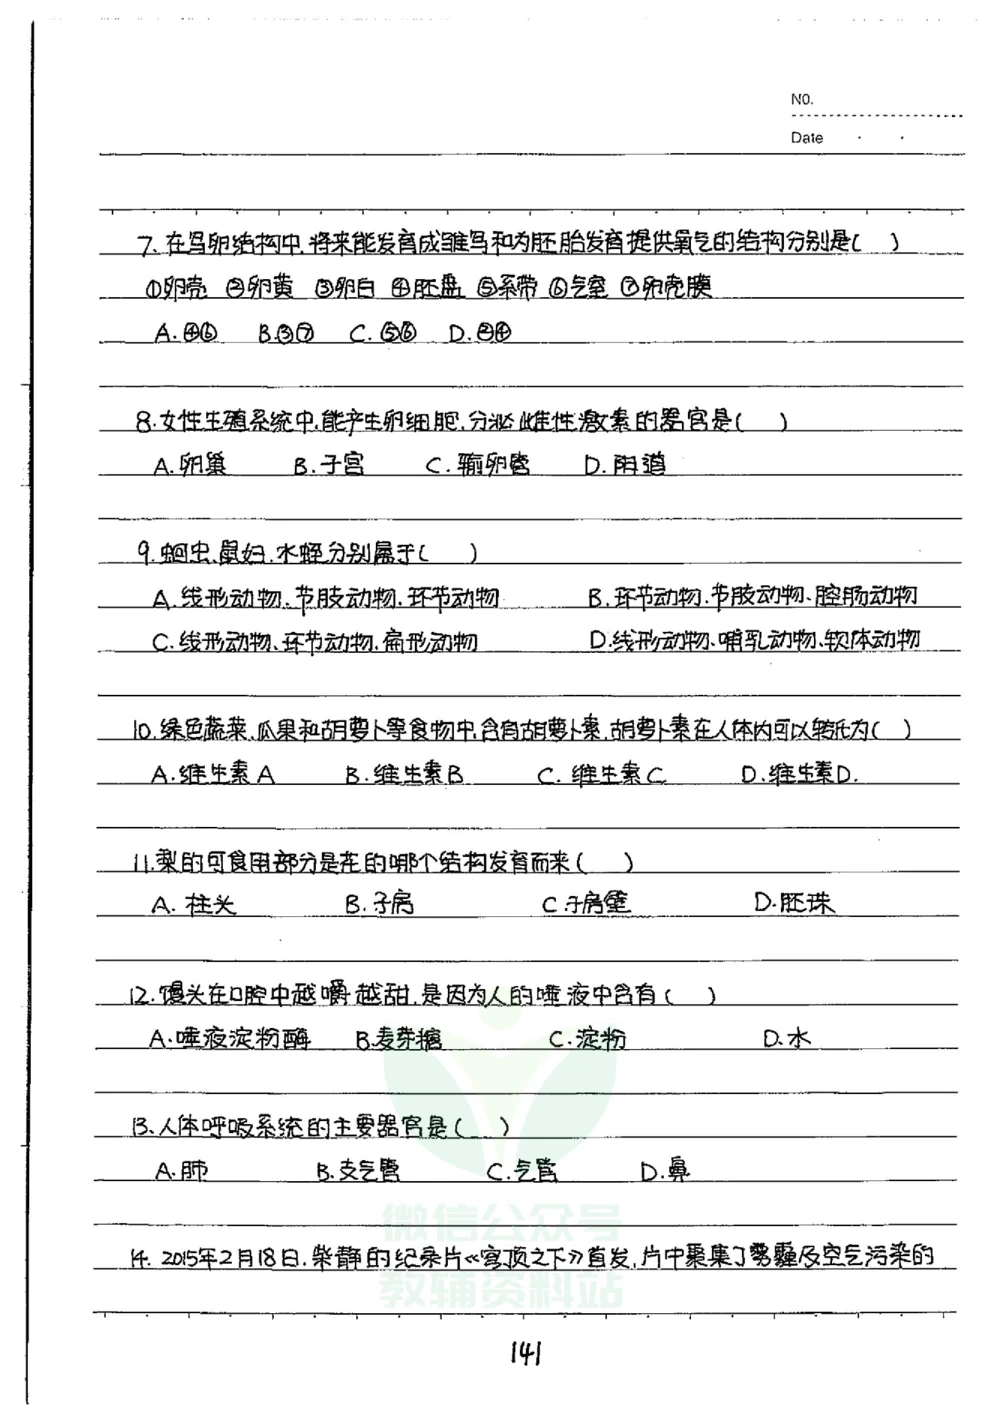 NO.
Date
7. 在鸟卵结构中,将来能发育成雏鸟和为胚胎发育提供氧气的结构分别是( )
①卵壳 ②卵黄 ③卵白 ④胚盘 ⑤系带 ⑥气室 ⑦卵壳膜
A.④⑥ B.③⑦ C.⑤⑥ D.②④
8.女性生殖系统中,能产生卵细胞,分泌雌性激素的器官是( )
A.卵巢 B.子宫 C.输卵管 D.阴道
9.蛔虫、鼠妇、水蛭分别属于( )
A.线形动物、节肢动物、环节动物 B.环节动物、节肢动物、腔肠动物
C.线形动物、环节动物、扁形动物 D.线形动物、哺乳动物、软体动物
10.绿色蔬菜、瓜果和胡萝卜等食物中,含有胡萝卜素,胡萝卜素在人体内可以转化为( )
A.维生素A B.维生素B C.维生素C D.维生素D.
11.梨的可食用部分是花的哪个结构发育而来( )
A.柱头 B.子房 C.子房壁 D.胚珠
12.馒头在口腔中越嚼越甜,是因为人的唾液中含有( )
A.唾液淀粉酶 B.麦芽糖 C.淀粉 D.水
13.人体呼吸系统的主要器官是( )
A.肺 B.支气管 C.气管 D.鼻
微信公众号
14. 2015年2月18日,柴静的纪录片《穹顶之下》首发,片中聚集了雾霾及空气污染的
教辅资料站
141